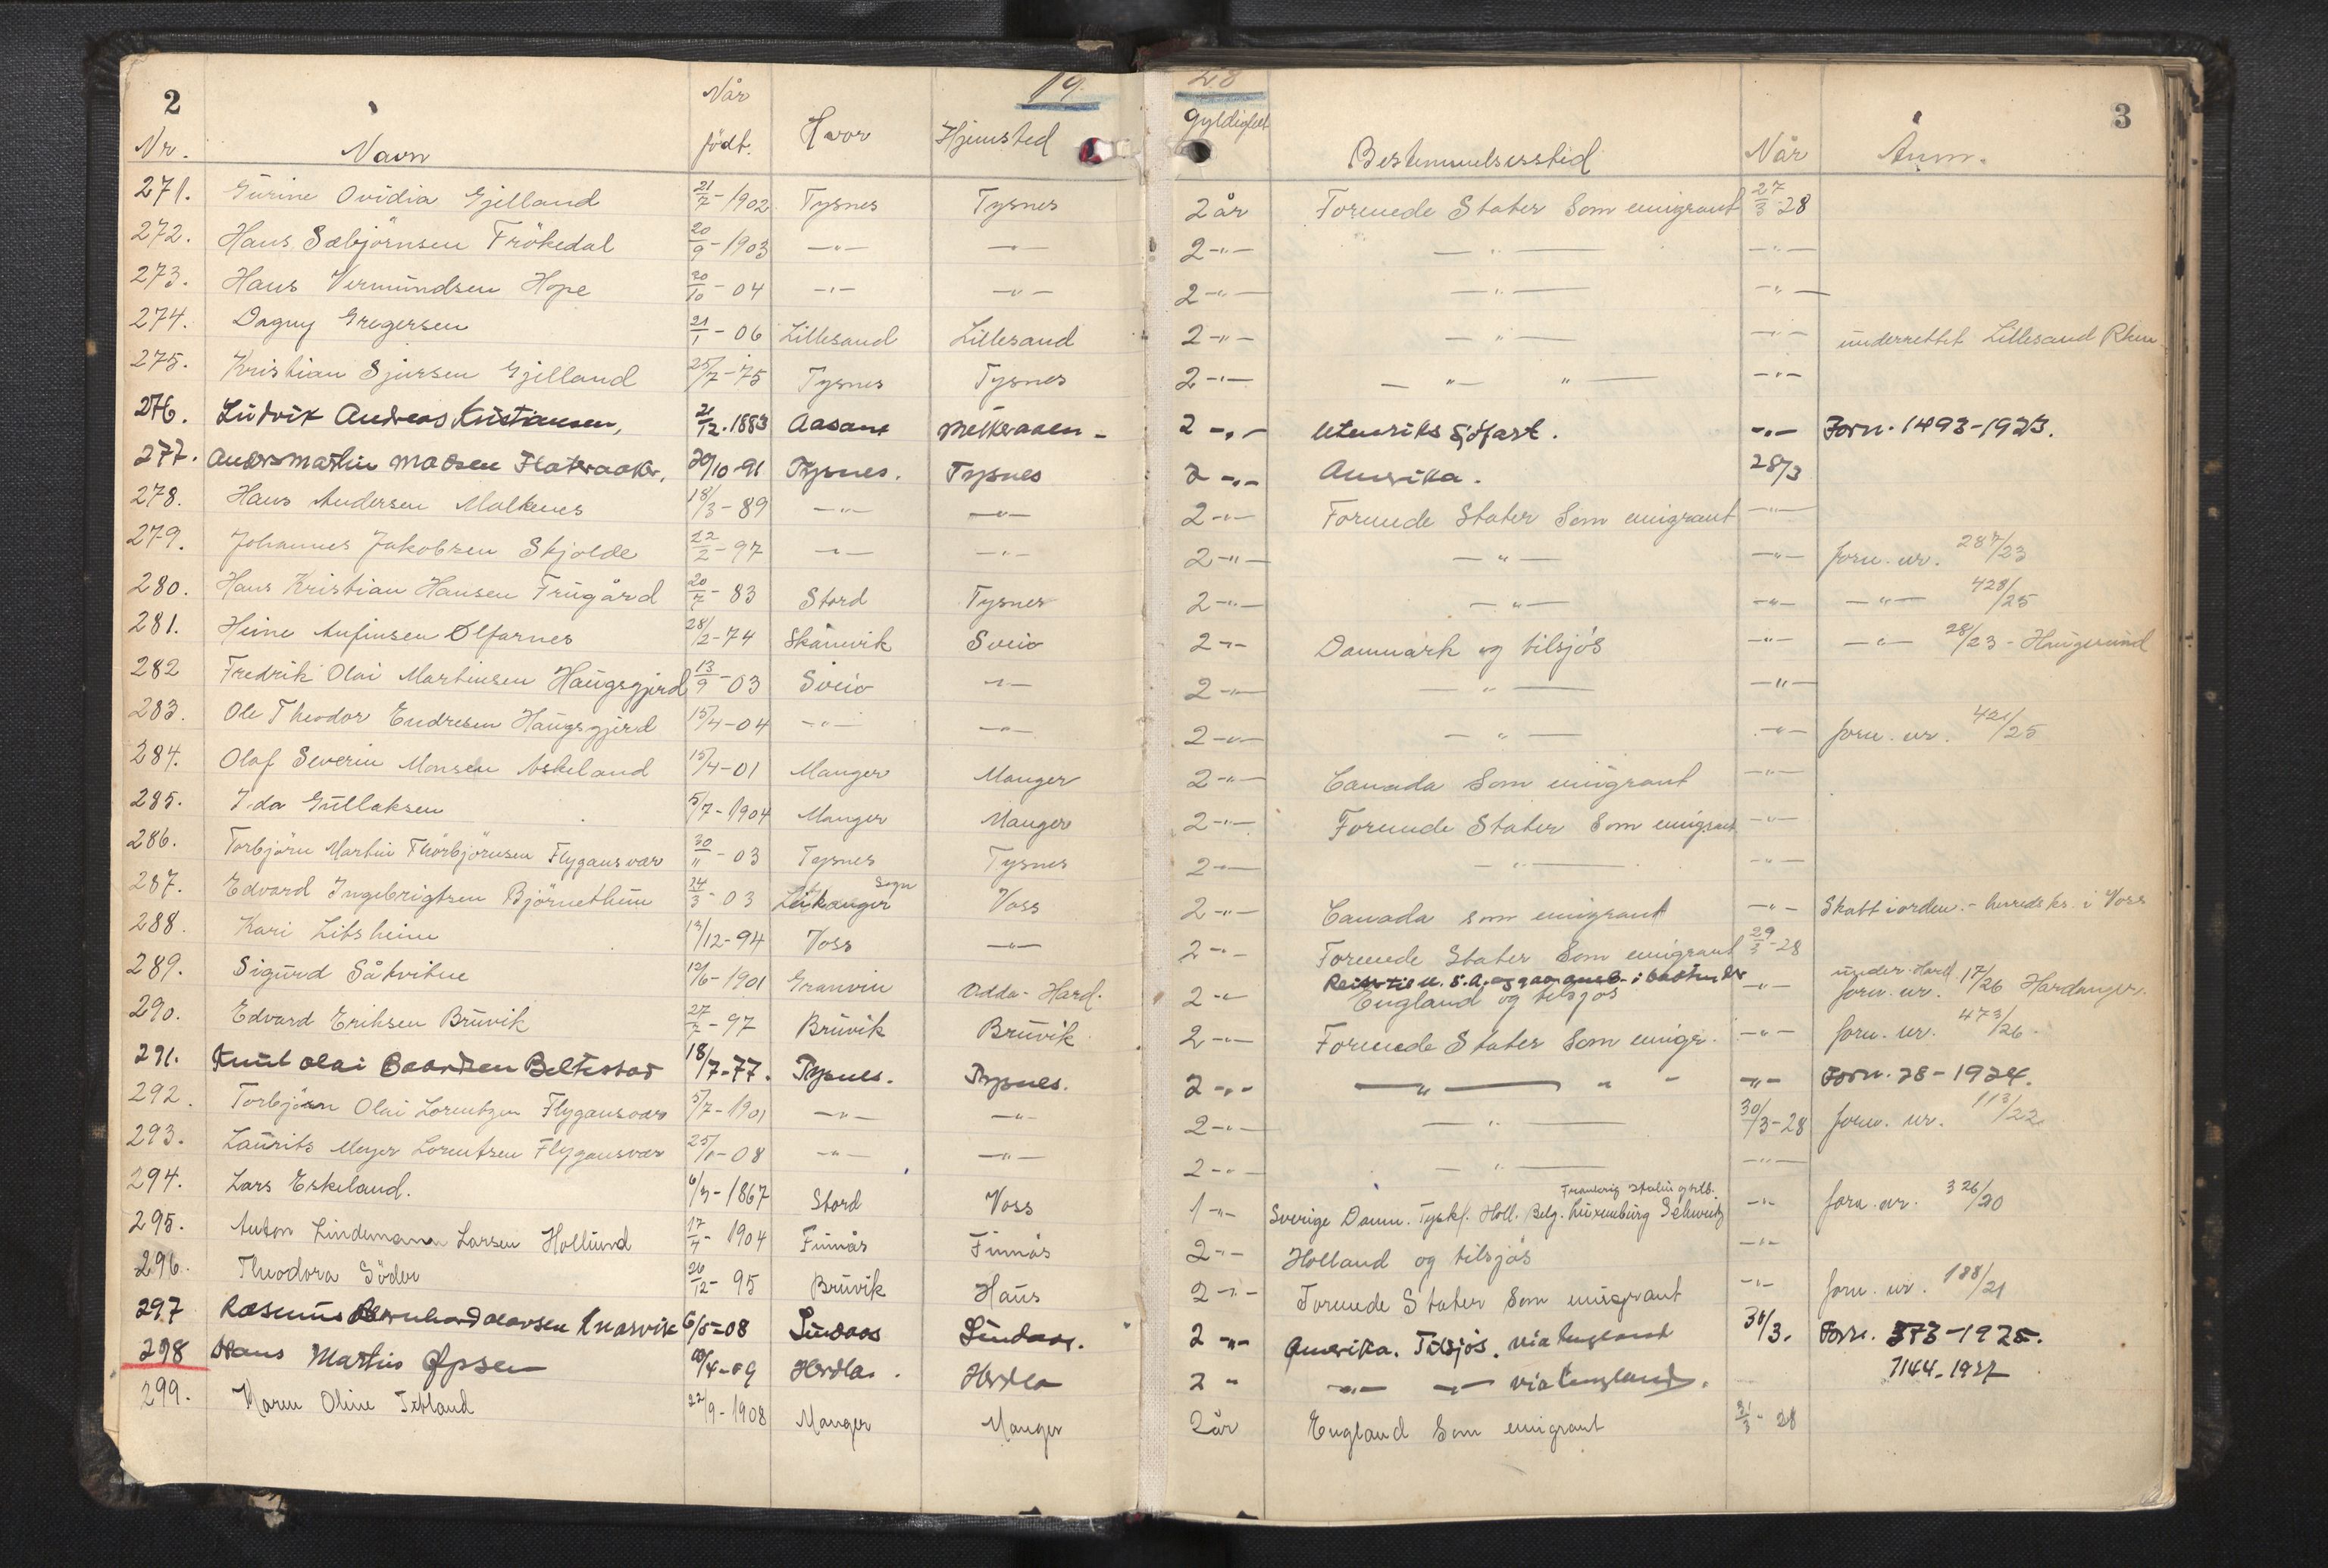 2 19 28 3
Nr. Navn Når født. Hvor Hjemsted Gyldighet Bestemmelsessted Når Anm.
271. Gurine Ovidia Gjelland 21/7-1902 Tysnes Tysnes 2 år Forenede Stater som emigrant 27/3-28
272. Hans Sæbjörnsen Frökedal 20/9-1903 -"- -"- 2-"- -"- -"-
273. Hans Vermundsen Hope 20/10-04 -"- -"- 2-"- -"- -"-
274. Dagny Gregersen 21/1-06 Lillesand Lillesand 2-"- -"- -"- underrettet Lillesand
275. Kristian Sjursen Gjelland 25/7-75 Tysnes Tysnes 2-"- -"- "- -"-
276. Ludvik Andreas Kristiansen, 21/12.1883 Aasane 2-"- Utenriks Sjöfart. -"- Forn. 1493-1923.
277. Anders Martin Madsen Flateraaker, 20/10-91 Tysnes. Tysnes 2-"- Amerika. 28/3
278. Hans Andersen Malkenes 18/3-89 -"- -"- 2-"- Forenede Stater som emigrant -"-
279. Johannes Jakobsen Skjolde 22/2-97 -"- -"- 2-"- -"- -"- forn. nr. 287/23
280. Hans Kristian Hansen Frugård 20/7-83 Stord Tysnes 2-"- -"- -"- -"- 428/25
281. Heine Anfinsen Ølfarnes 28/2-74 Skånevik Sveio 2-"- Danmark og tilsjös -"- -"- 28/23 - Haugesund
282 Fredrik Olai Martinsen Haugsgjerd 13/9-03 Sveio -"- 2-"- -"- -"-
283. Ole Theodor Endresen Haugsgjerd 15/4-04 -"- -"- 2-"- -"- -"- forn. nr. 421/25
284. Olaf Severin Monsen Askeland 15/4-01 Manger Manger 2-"- Canada som emigrant -"-
285. Ida Gullaksen 5/7-1904 Manger Manger 2-"- Forenede Stater som emigrant -"-
286. Torbjörn Martin Thorbjörnsen Flygansvær 30/11-03 Tysnes Tysnes 2-"- -"- -"-
287. Edvard Ingebrigtsen Björnethun 24/3-03 Leikanger Sogn Voss 2-"- Canada som emigrant -"- Skatt i orden - herredsks. i Voss
288. Kari Litsheim 13/12-94 Voss -"- 2-"- Forenede Stater som emigrant 29/3-28
289. Sigurd Såkvitne 12/6-1901 Granvin Odda - Hard. 2-"- England og tilsjös -"- forn. nr. 17/26 Hardanger.
290. Edvard Eriksen Bruvik 27/7-97 Bruvik Bruvik 2-"- Forenede Stater som emigr. -"- forn. nr. 473/26.
291. Knut Olai Baardsen Beltestad 18/7-77. Tysnes. Tysnes. 2-"- -"- "- -"- Forn. 28-1924.
292. Torbjörn Olai Lorentzen Flygansvær 5/7-1901 -"- -"- 2-"- -"- 30/3-28 forn. nr. 113/22
293. Laurits Meyer Lorentsen Flygansvær 25/1-08 -"- -"- 2-"- -"- -"-
294. Lars Eskeland. 6/3-1867 Stord Voss 1-"- Sverige Danm. Tyskl. Holl. Belg. Luxemburg Schweitz Frankrig Italia -"- forn. nr. 326/20
295. Anton Lindemann Larsen Hollund 17/4-1904 Finnås Finnås 2-"- Holland og tilsjös -"-
296. Theodora Söder 26/12-95 Bruvik Haus 2-"- Forenede Stater som emigrant -"- forn. nr. 188/21
297 Rasmus Bernhard Olavsen Knarvik 6/5-08 Lindaas Lindaas. 2-"- Amerika. Tilsjös. via England 30/3. Forn. 373-1925.
298 Hans Martin Ypsen 20/4-09 Herdla. Herdla 2 " -"- -"- via England. 1144-1927
299. Maren Oline Tetland 22/9-1908 Manger Manger 2 år England som emigrant 31/3-28